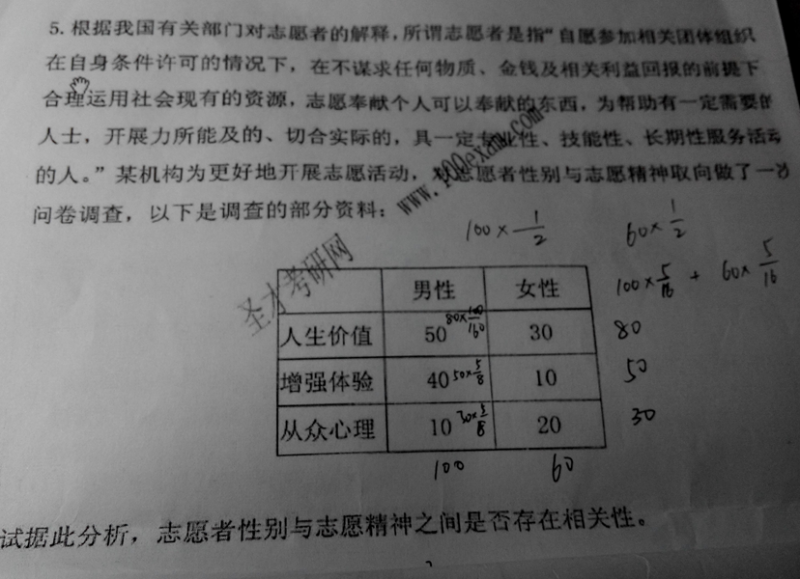 5. 根据我国有关部门对志愿者的解释，所谓志愿者是指“自愿参加相关团体组织
在自身条件许可的情况下，在不谋求任何物质、金钱及相关利益回报的前提下
合理运用社会现有的资源，志愿奉献个人可以奉献的东西，为帮助有一定需要的
人士，开展力所能及的、切合实际的，具一定专业性、技能性、长期性服务活动
的人。”某机构为更好地开展志愿活动，对志愿者性别与志愿精神取向做了一次
问卷调查，以下是调查的部分资料：
www.100exam.com
圣才考研网
100×1/2 60×1/2
100×5/16 + 60×5/16
男性 女性
人生价值 50 80×100/160 30 80
增强体验 40 50×5/8 10 50
从众心理 10 30×5/8 20 30
100 60
试据此分析，志愿者性别与志愿精神之间是否存在相关性。